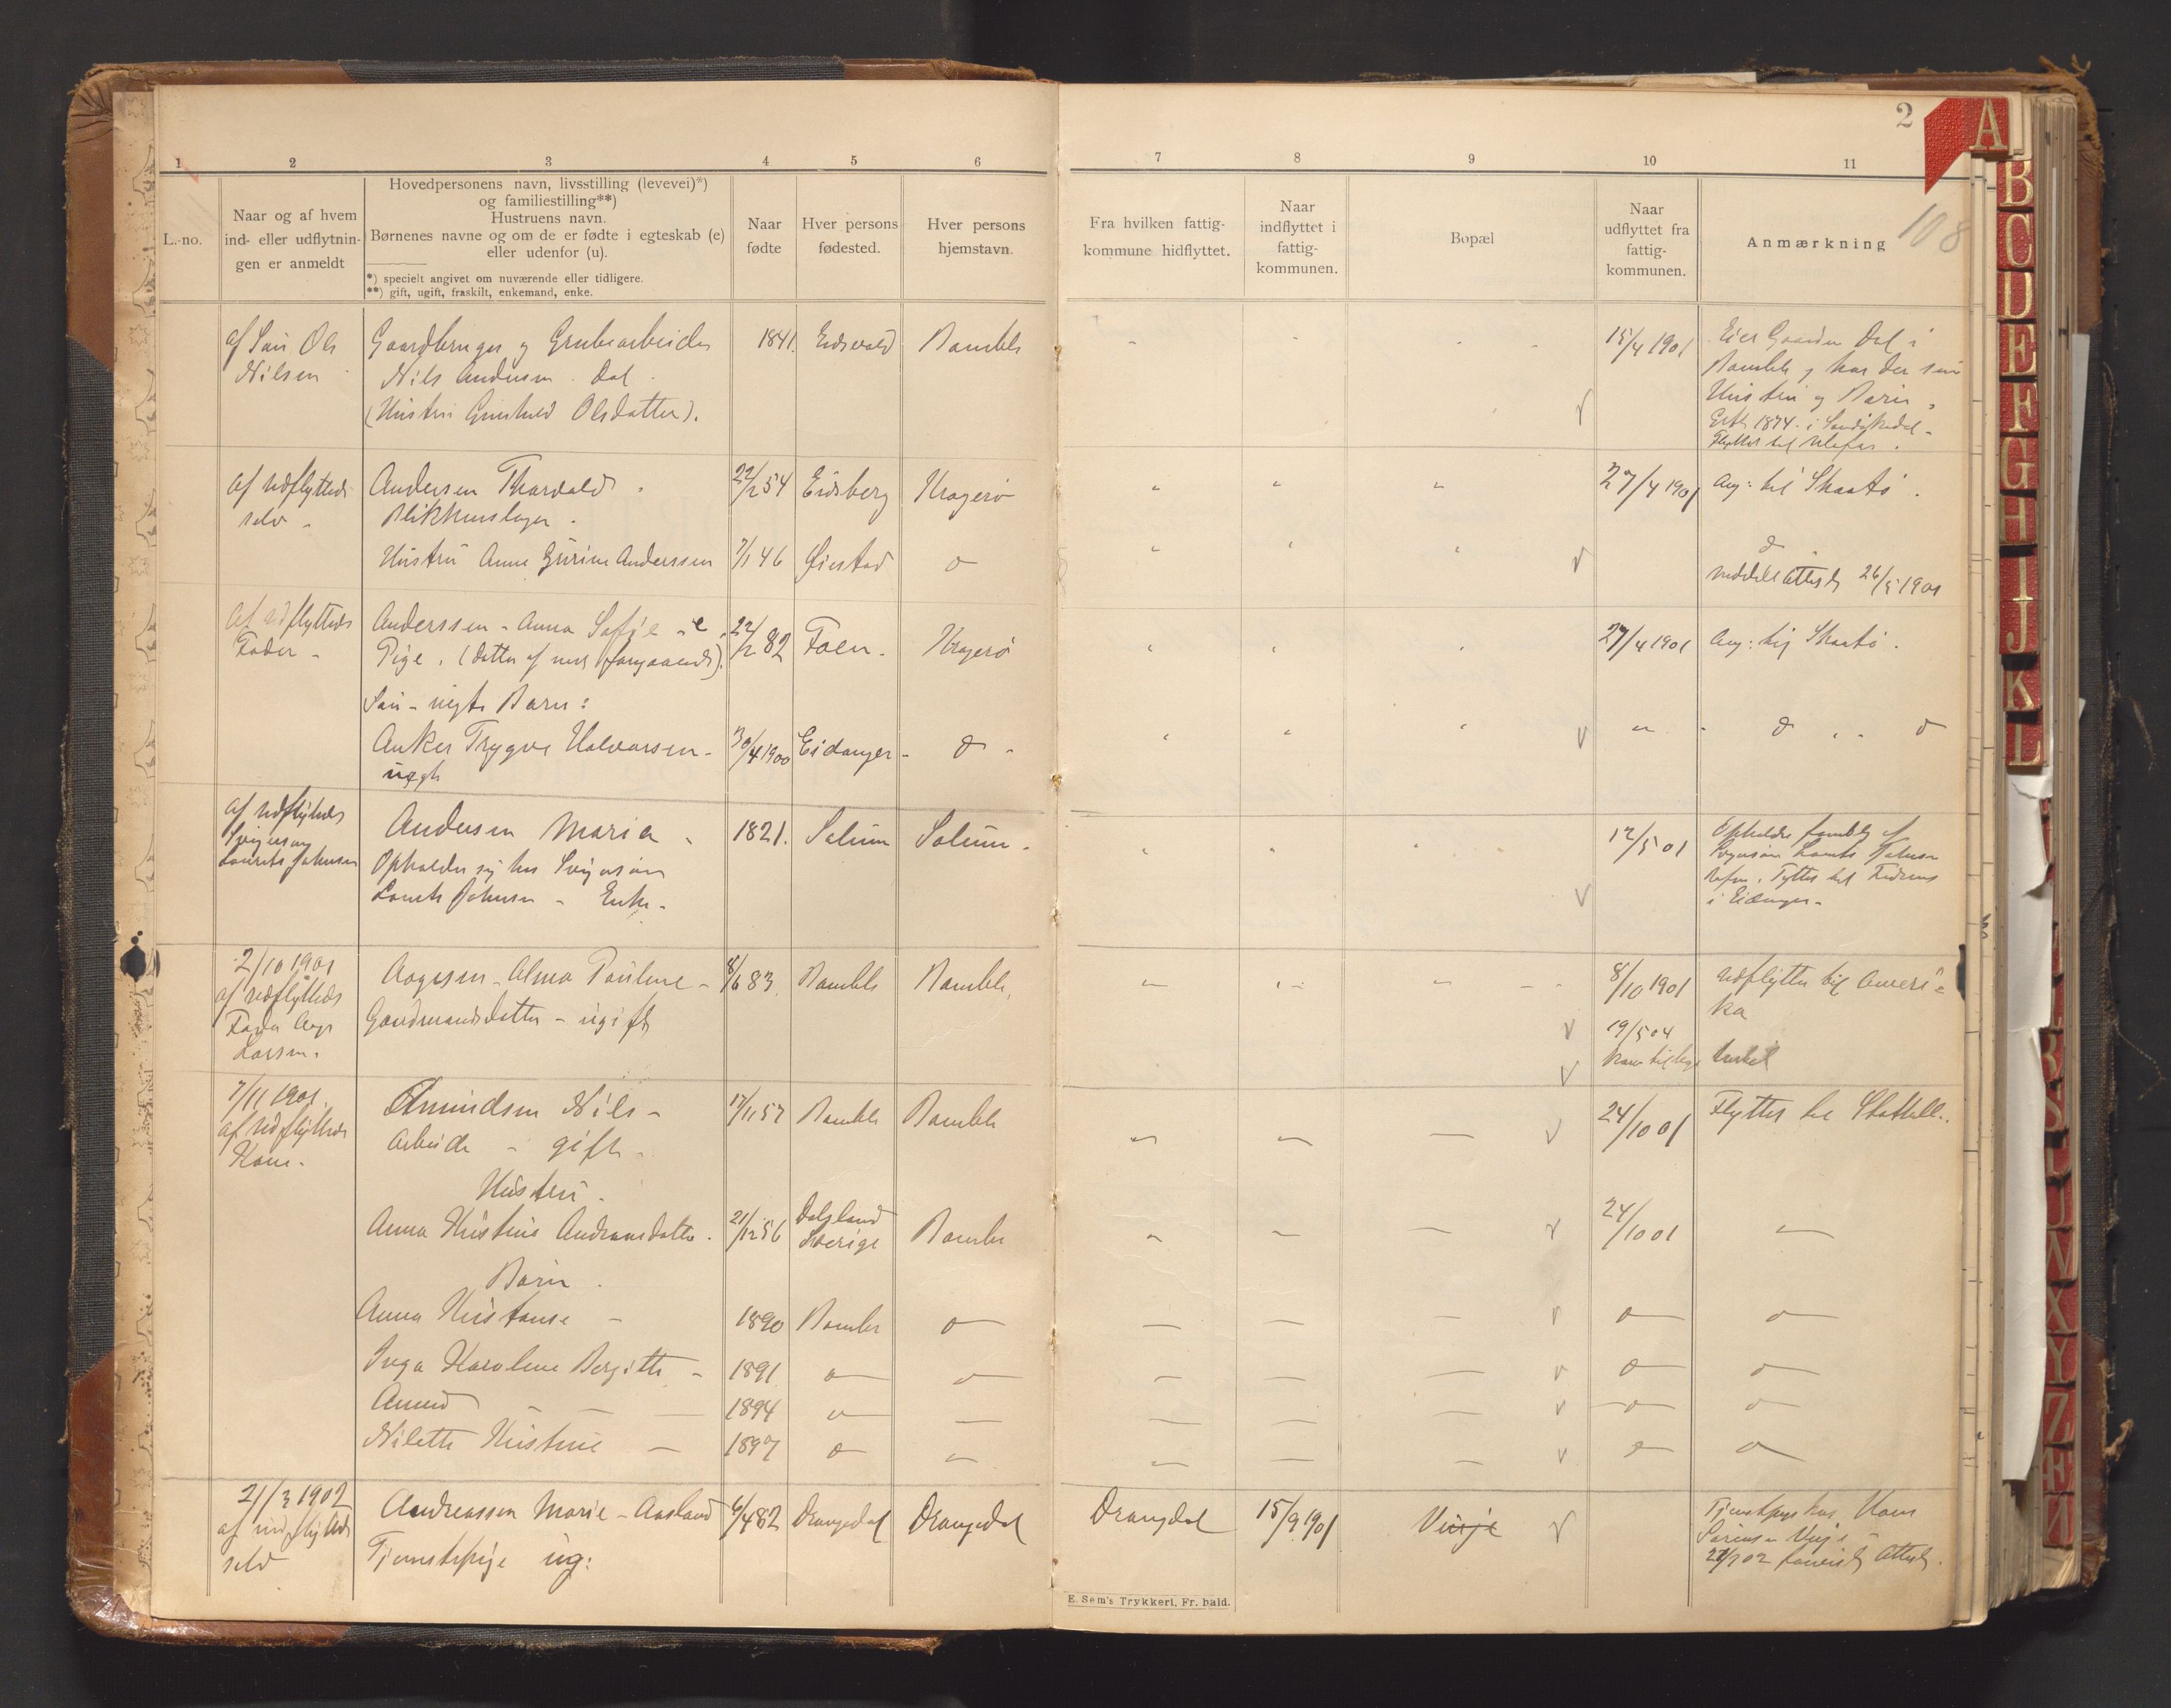 2
108
1 2 3 4 5 6 7 8 9 10 11
L.-no.
Naar og af hvem
ind- eller udflytnin-
gen er anmeldt
Hovedpersonens navn, livsstilling (levevei)*)
og familiestilling**)
Hustruens navn.
Børnenes navne og om de er fødte i egteskab (e)
eller udenfor (u).
*) specielt angivet om nuværende eller tidligere.
**) gift, ugift, fraskilt, enkemand, enke.
Naar
fødte
Hver persons
fødested.
Hver persons
hjemstavn.
Fra hvilken fattig-
kommune hidflyttet.
Naar
indflyttet i
fattig-
kommunen.
Bopæl
Naar
udflyttet fra
fattig-
kommunen.
Anmærkning
af Søn Ole
Nilsen
Gaardbruger og Grubearbeider
Nils Andersen Dal
(Hustru Gunhild Olsdatter).
1841. Eidsvold Bamble
15/4 1901
Eier Gaarden Dal i
Bamble og har der sin
Hustru og Børn,
Gift 1874 i
Flyttet til
af Udflyttede
selv
Andersen Thorvald
Blikkenslager
22/2 54 Eidsberg Kragerø
27/4 1901 Ang: til Skaatø.
Hustru Anne Gurine Anderssen 7/1 46 Øiestad do
do
meddelt Attest 26/5 1901
Af udflyttedes
Fader
Anderssen - Anna Sofie - e.
Pige. (datter af nest foregaaende).
22/2 82 Foen. Kragerø
27/4 1901 Ang: til Skaatø.
Søn - uegte Barn:
Anker Trygve Halvorsen -
uegt
30/4 1900 Eidanger do
" do do
af udflyttedes
Svigersøn
Laurits Johnsen
Andersen Maria
Opholder sig hos Svigersøn
Laurits Johnsen - Enke -
1821. Solum Solum.
12/5 01
Opholder
Svigersøn Laurits Johnsen
Flytter til
i Eidanger -
2/10 1901
af udflyttedes
Fader Aage
Larsen.
Aagesen - Alma Pauline -
Gaardmandsdatter - ugift
8/6 83. Bamble Bamble.
8/10 1901
udflytter til Ameri-
ka
19/5 04
kom tilbage
7/11 1901.
af Udflyttede
Kone.
Amundsen Nils -
Arbeider - gift -
17/11 57 Bamble Bamble
24/10 01 Flyttet til Stathelle.
Hustru.
Anna Kristine Andreasdatter. 21/12 56 Dalsland
Sverige Bamble
24/10 01
Børn.
Anna Kristanse - 1890 Bamble do do do
Inga Karoline Bergitte - 1891 do do do do
Amund 1894 do do do
Nilette Kristine - 1897 do do do
21/3 1902
af indflyttede
selv
Andreassen Marie - Aasland
Tjenestepige ug:
6/4 82 Drangedal Drangedal
Drangdal 15/9 1901 Virje
Tjenestepige hos Hans
Sørensen Virje
Attest.
E. Sem's Trykkeri, Fr. hald.
A
B
C
D
E
F
G
H
I
J
K
L
X
Y
Z
Æ